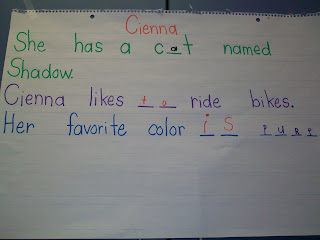 Cienna
She has a cat named
Shadow.
Cienna likes to ride bikes.
Her favorite color is